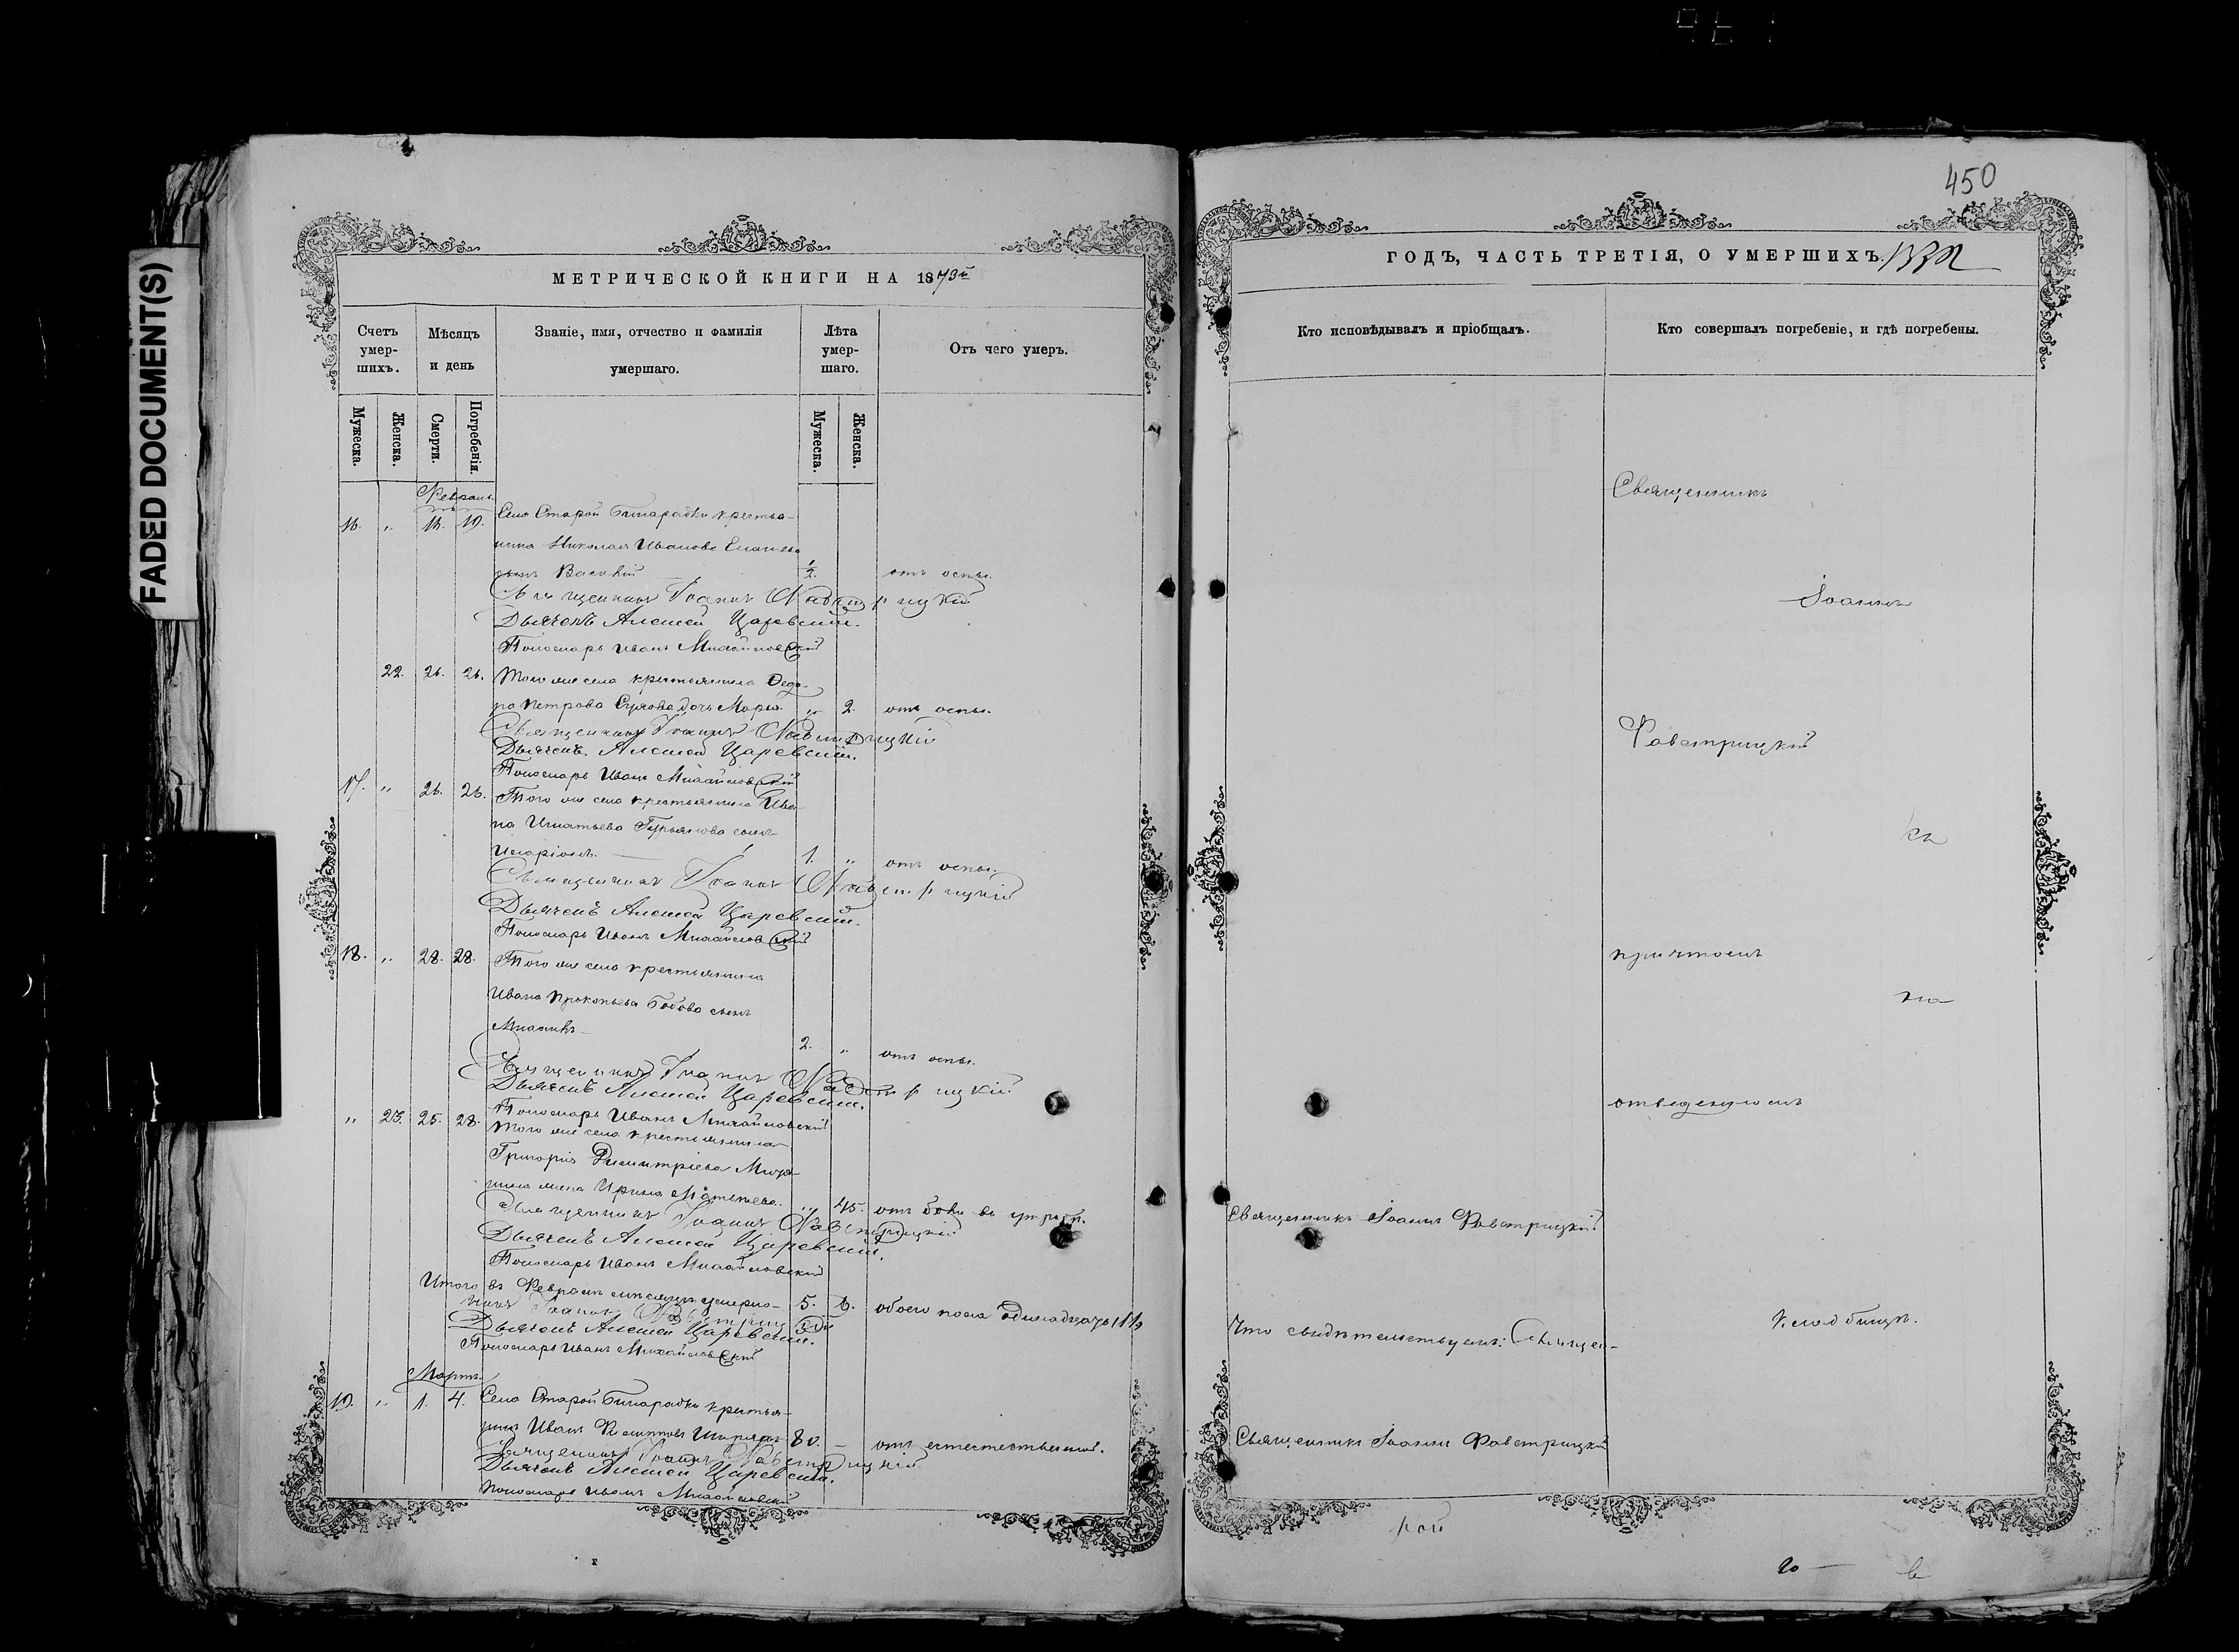 FADED DOCUMENT(S)
450
МЕТРИЧЕСКОЙ КНИГИ НА 1873й
Счетъ умер-шихъ.
Мѣсяцъ и день
Званіе, имя, отчество и фамилія умершаго.
Лѣта умер-шаго.
Отъ чего умеръ.
Мужеска.
Женска.
Смерти.
Погребенія.
Мужеска.
Женска.
Февраль
16. „ 18. 19. Села Старой Бинарадки крестья-
нина Николая Иванова
сынъ Василій 1/2. отъ оспы.
Священникъ Іоаннъ Фавстрицкій
Дьячекъ Алексей Царевскій.
Пономарь Иванъ Михайловскій
22. 26. 26. Того же села крестьянина Ѳедо-
ра Петрова дочь Марья. „ 2. отъ оспы.
Священникъ Іоаннъ Фавстрицкій
Дьячекъ Алексей Царевскій.
Пономарь Иванъ Михайловскій
17. „ 26. 26. Того же села крестьянина Ива-
на Игнатьева Гурьянова сынъ
Иларіонъ. 1. „ отъ оспы.
Священникъ Іоаннъ Фавстрицкій
Дьячекъ Алексей Царевскій.
Пономарь Иванъ Михайловскій
18. „ 28. 28. Того же села крестьянина
Ивана Прокопьева Бобова сынъ
Михаилъ 2. „ отъ оспы.
Священникъ Іоаннъ Фавстрицкій
Дьячекъ Алексей Царевскій.
Пономарь Иванъ Михайловскій
„ 23. 25. 28. Того же села крестьянина
Григорія Димитріева
жена Ирина Матвеева. „ 45. отъ боли въ
Священникъ Іоаннъ Фавстрицкій
Дьячекъ Алексей Царевскій.
Пономарь Иванъ Михайловскій
Итого въ Феврале месяце умерло 5. 6. обоего пола одинадцать 11.
никъ Іоаннъ Фавстрицкій
Дьячекъ Алексей Царевскій.
Пономарь Иванъ Михайловскій
Мартъ.
19. „ 1. 4. Села Старой Бинарадки крестья-
нинъ Иванъ 80. отъ естественной.
Священникъ Іоаннъ Фавстрицкій
Дьячекъ Алексей Царевскій.
Пономарь Иванъ Михайловскій
ГОДЪ, ЧАСТЬ ТРЕТІЯ, О УМЕРШИХЪ.
Кто исповѣдывалъ и пріобщалъ.
Кто совершалъ погребеніе, и гдѣ погребены.
Священникъ
Іоаннъ
Фавстрицкій
съ
причтомъ
на
отведенномъ
Священникъ Іоаннъ Фавстрицкій
кладбище.
Что свидѣтельствуемъ: Священ-
Священникъ Іоаннъ Фавстрицкій